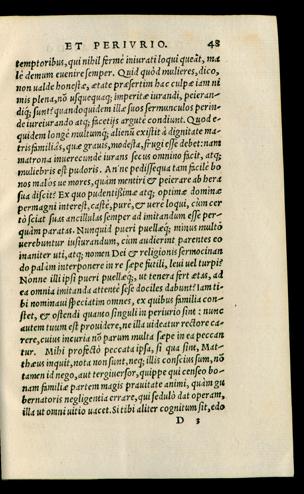 ET PERIVRIO. 48
temptoribus, qui nihil fermè iniurati loqui queāt, ma
lè demum euenire semper. Quid quòd mulieres, dico,
non ualde honestæ, ætate præsertim hac culpæ iam ni
mis plena, nō usquequaq; imperitæ iurandi, peieran-
diq; sunt? quandoquidem illæ suos sermunculos perin-
de iureiurando atq; facetijs argutè condiunt. Quod e-
quidem longè multumq; alienū existit à dignitate ma-
trisfamiliâs, quæ grauis, modesta, frugi esse debet: nam
matrona inuerecundè iurans secus omnino facit, atq;
muliebris est pudoris. An'ne pedissequa tam facilè bo
nos maliōs ue mores, quàm mentiri & peierare ab hera
sua discit? Ex quo pudentißimæ atq; optimæ dominæ
permagni interest, castè, purè, & uerè loqui, cùm cer
tò sciat suas ancillulas semper ad imitandum esse per-
quàm paratas. Nunquid pueri puellæq; minus multò
uerebuntur iusiurandum, cùm audierint parentes eo
inaniter uti, atq; nomen Dei & religionis sermocinan
do palàm interponere in re sæpe futili, leui uel turpi?
Nonne illi ipsi pueri puellæq;, ut tenera fert ætas, ad
ea omnia imitanda attentè sese dociles dabunt? Iam ti-
bi nominaui speciatim omnes, ex quibus familia con-
stet, & ostendi quanto singuli in periurio sint: nunc
autem tuum est prouidere, ne illa uideatur rectore ca-
rere, cuius incuria nō parum multa sæpe in ea peccan
tur. Mihi profectò peccata ipsa, si qua sint, Mat-
thæus inquit, nota non sunt, neq; illis conscius sum, nō
tamen id nego, aut tergiuersor, quippe qui censeo bo-
nam familiæ partem magis prauitate animi, quàm gu
bernatoris negligentia errare, qui sedulò dat operam,
illa ut omni uitio uacet. Si tibi aliter cognitum sit, edo
D 3